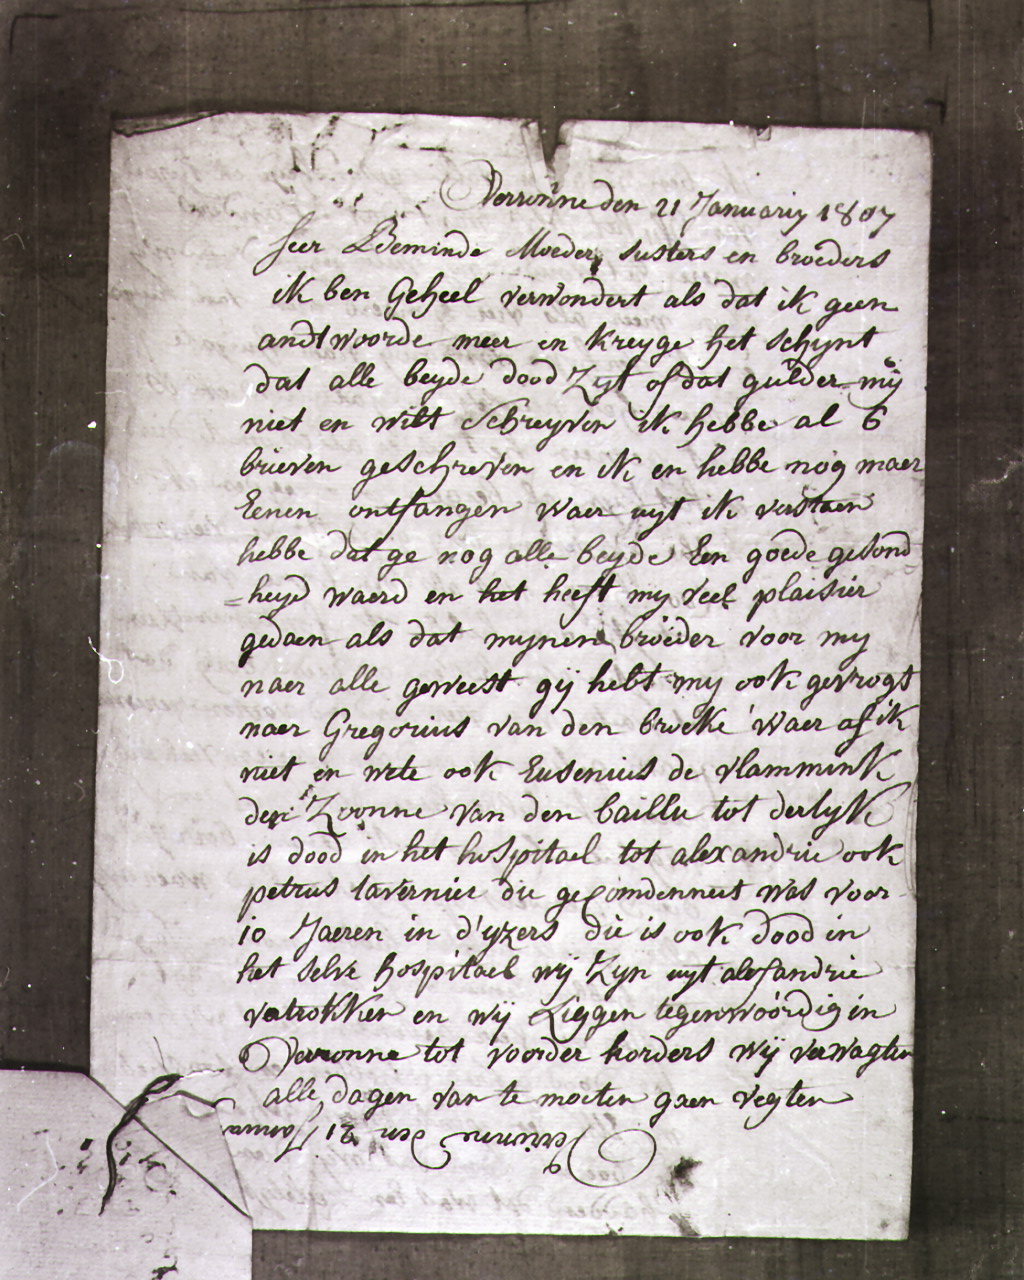 Verronne den 21 Januariy 1807
seer Beminde Moeder susters en broeders
ik ben Geheel verwondert als dat ik geen
andtwoorde meer en kreyge het schynt
dat alle beyde dood Zyt of dat gulder mÿ
niet en wilt schreyven ik hebbe al 6
brieven geschreven en ik en hebbe nog maer
Eenen ontfangen waer uyt ik verstaen
hebbe dat ge nog alle beyde Een goede gesond
=heyd waerd en het heeft my veel plaisier
gedaen als dat mynen broeder voor my
naer alle geweest gÿ hebt my ook gevrogt
naer Gregorius van den broeke waer af ik
niet en wete ook Eusenius de vlammink
den Zoonne van den bailliu tot derlyk
is dood in het hospitael tot alexandrie ook
petrus tavernier die gecomdenneert was voor
10 Jaeren in d'yzers die is ook dood in
het selve hospitael wÿ Zyn uyt alesandrie
vertrokken en wÿ Liggen tegenwoordig in
Verronne tot voorder horders wÿ verwagten
alle dagen van te moeten gaen vegten
den 21